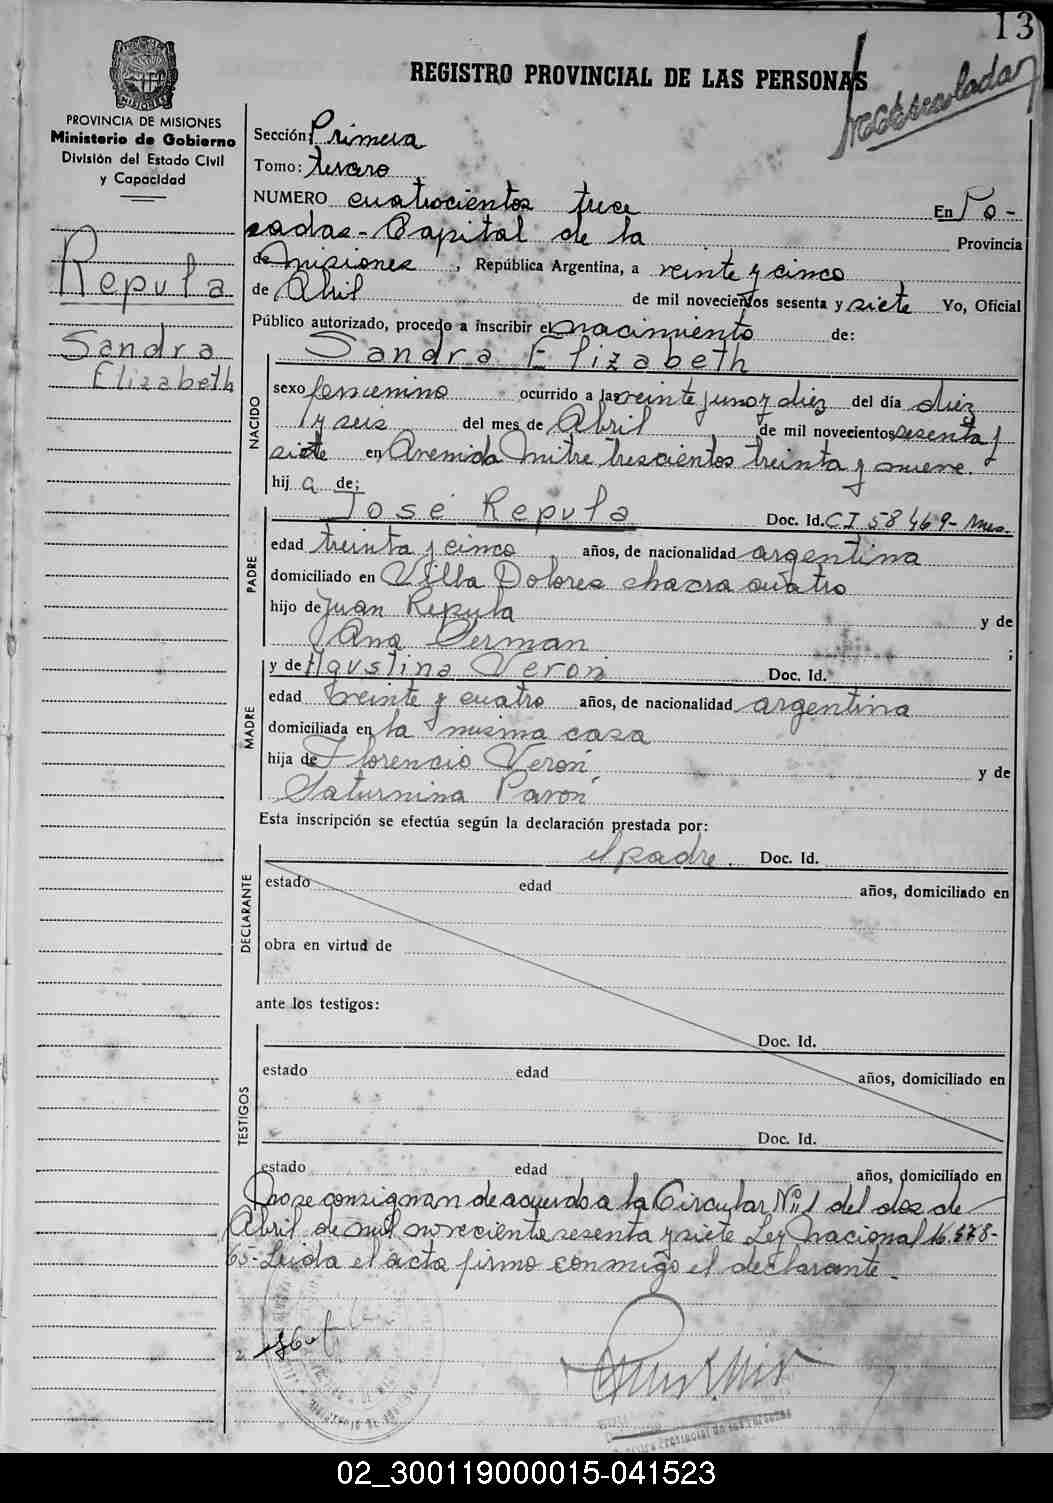 13
REGISTRO PROVINCIAL DE LAS PERSONAS
PROVINCIA DE MISIONES
Ministerio de Gobierno
División del Estado Civil
y Capacidad
Repula
Sandra
Elizabeth
Sección: Primera
Tomo: tercero
NUMERO cuatrocientos trece En Po-
sadas - Capital de la Provincia
de Misiones, República Argentina, a veinte y cinco
de Abril de mil novecientos sesenta y siete Yo, Oficial
Público autorizado, procedo a inscribir el nacimiento de:
Sandra Elizabeth
NACIDO
sexo femenino ocurrido a las veinte y uno y diez del día diez
y seis del mes de Abril de mil novecientos sesenta y
siete en Avenida Mitre trescientos treinta y nueve.
hija de:
José Repula Doc. Id. CI 58469- Mnes.
PADRE
edad treinta y cinco años, de nacionalidad argentina
domiciliado en Villa Dolores chacra cuatro
hijo de Juan Repula y de
Ana German ;
y de Agustina Verón Doc. Id.
MADRE
edad treinte y cuatro años, de nacionalidad argentina
domiciliada en la misma casa
hija de Florencio Verón y de
Saturnina Pavón
Esta inscripción se efectúa según la declaración prestada por:
el padre. Doc. Id.
DECLARANTE
estado edad años, domiciliado en
obra en virtud de
ante los testigos:
Doc. Id.
TESTIGOS
estado edad años, domiciliado en
Doc. Id.
estado edad años, domiciliado en
no se consignan de acuerdo a la Circular Nº 1 del dos de
Abril de mil novecientos sesenta y siete Ley Nacional 16.478-
65- Leida el acta firmo conmigo el declarante.
Registro Provincial de las Personas
02_300119000015-041523